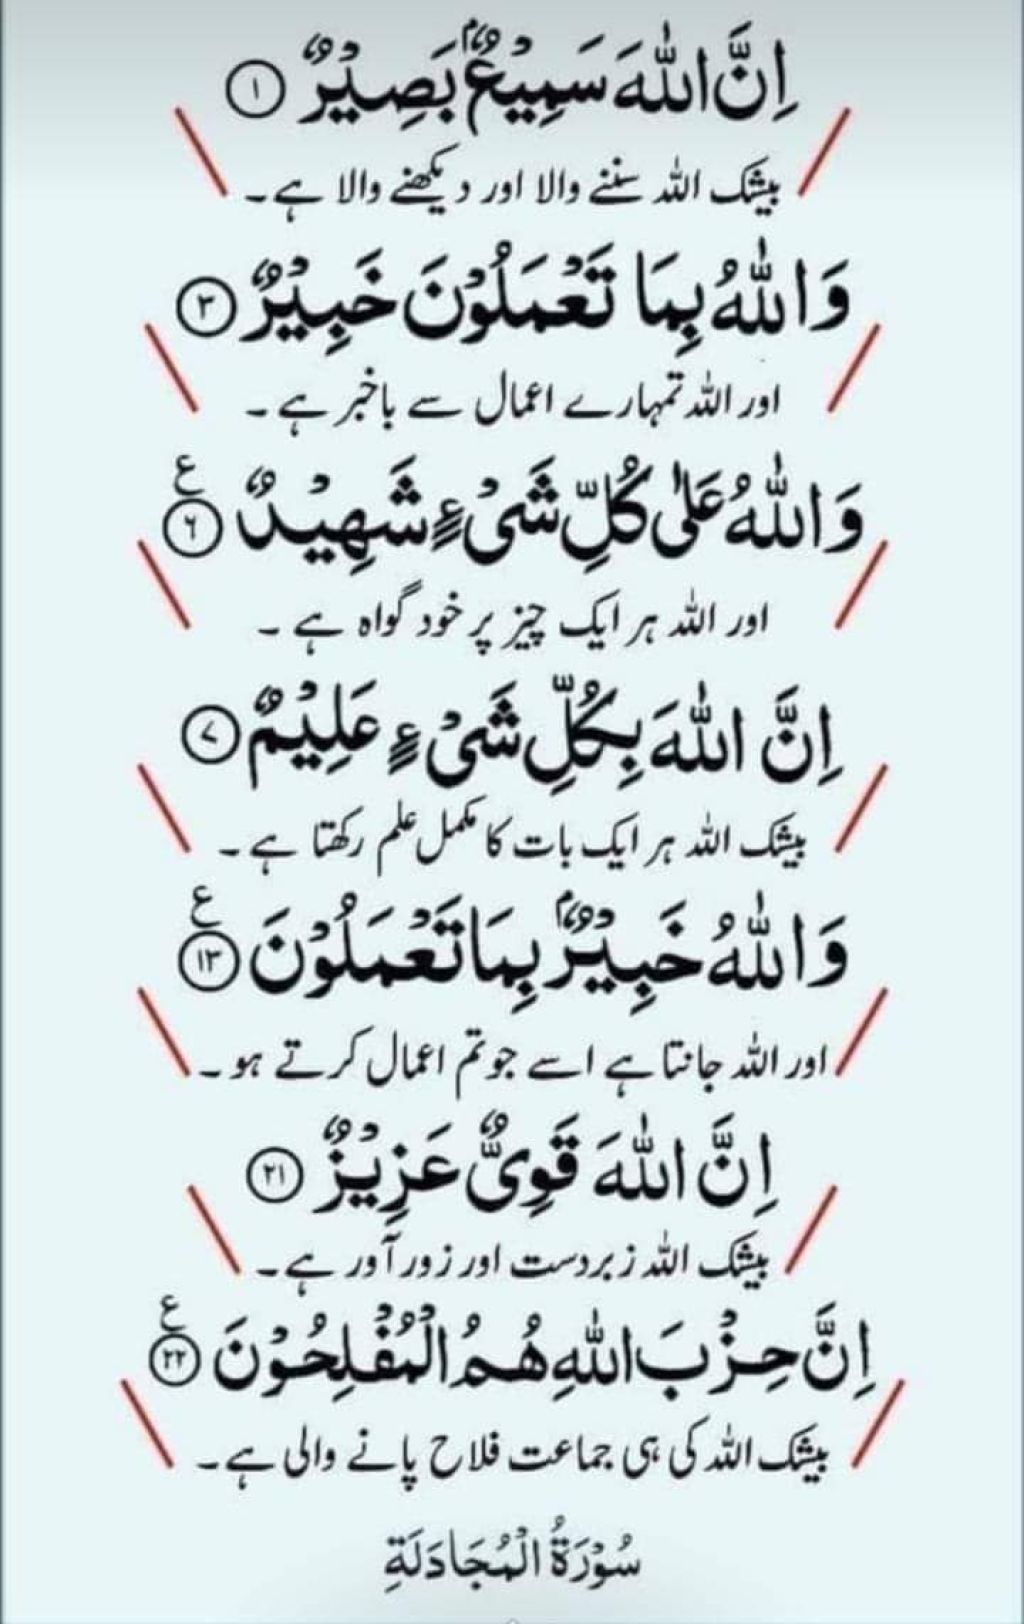 اِنَّ اللّٰهَ سَمِيْعٌۢ بَصِيْرٌ ۝١
بیشک اللہ سننے والا اور دیکھنے والا ہے۔
وَاللّٰهُ بِمَا تَعْمَلُوْنَ خَبِيْرٌ ۝٣
اور اللہ تمہارے اعمال سے باخبر ہے۔
وَاللّٰهُ عَلٰى كُلِّ شَىْءٍ شَهِيْدٌ ۝٦ ع
اور اللہ ہر ایک چیز پر خود گواہ ہے۔
اِنَّ اللّٰهَ بِكُلِّ شَىْءٍ عَلِيْمٌ ۝٧
بیشک اللہ ہر ایک بات کا مکمل علم رکھتا ہے۔
وَاللّٰهُ خَبِيْرٌۢ بِمَا تَعْمَلُوْنَ ۝١٣ ع
اور اللہ جانتا ہے اسے جو تم اعمال کرتے ہو۔
اِنَّ اللّٰهَ قَوِىٌّ عَزِيْزٌ ۝٢١
بیشک اللہ زبردست اور زور آور ہے۔
اِنَّ حِزْبَ اللّٰهِ هُمُ الْمُفْلِحُوْنَ ۝٢٢ ع
بیشک اللہ کی ہی جماعت فلاح پانے والی ہے۔
سُوْرَةُ الْمُجَادَلَةِ